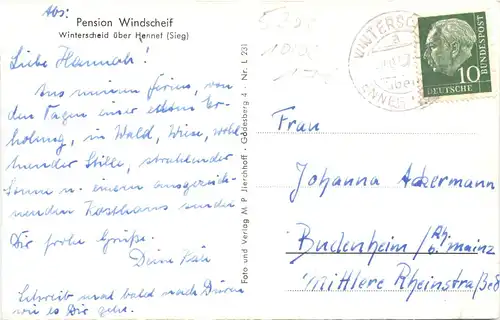 Abs:
Pension Windscheif
Winterscheid über Hennet (Sieg)
Liebe Hannah!
Aus meinen Ferien, von
den Tagen einer edlen Er-
holung, in Wald, Wiese, wohl-
tuender Stille, strahlender
Sonne u. einem ausgezeich-
nenden Kosthaus sende
Dir frohe Grüße.
Deine Käte
Schreib mal bald nach Düren
wie es Dir geht.
Foto und Verlag M. P. Jierchhoff · Godesberg 4 · Nr. L 231
WINTERSC
a
10
DEUTSCHE
BUNDESPOST
Frau
Johanna Ackermann
Budenheim / Rh.
b. Mainz
Mittlere Rheinstraße 8